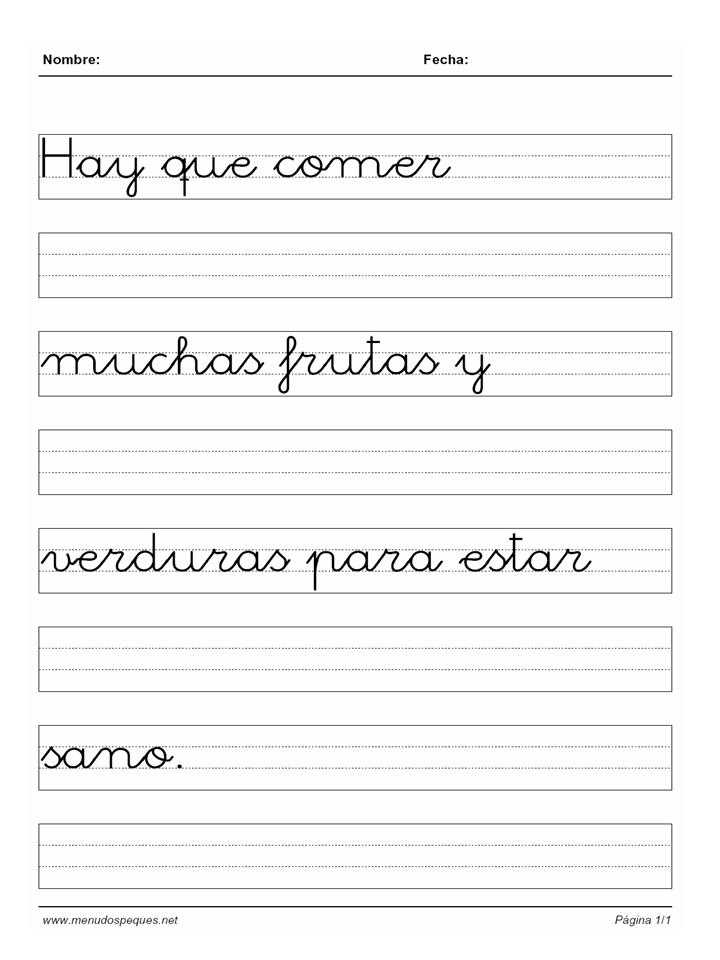 Nombre: Fecha:
Hay que comer
muchas frutas y
verduras para estar
sano.
www.menudospeques.net Página 1/1